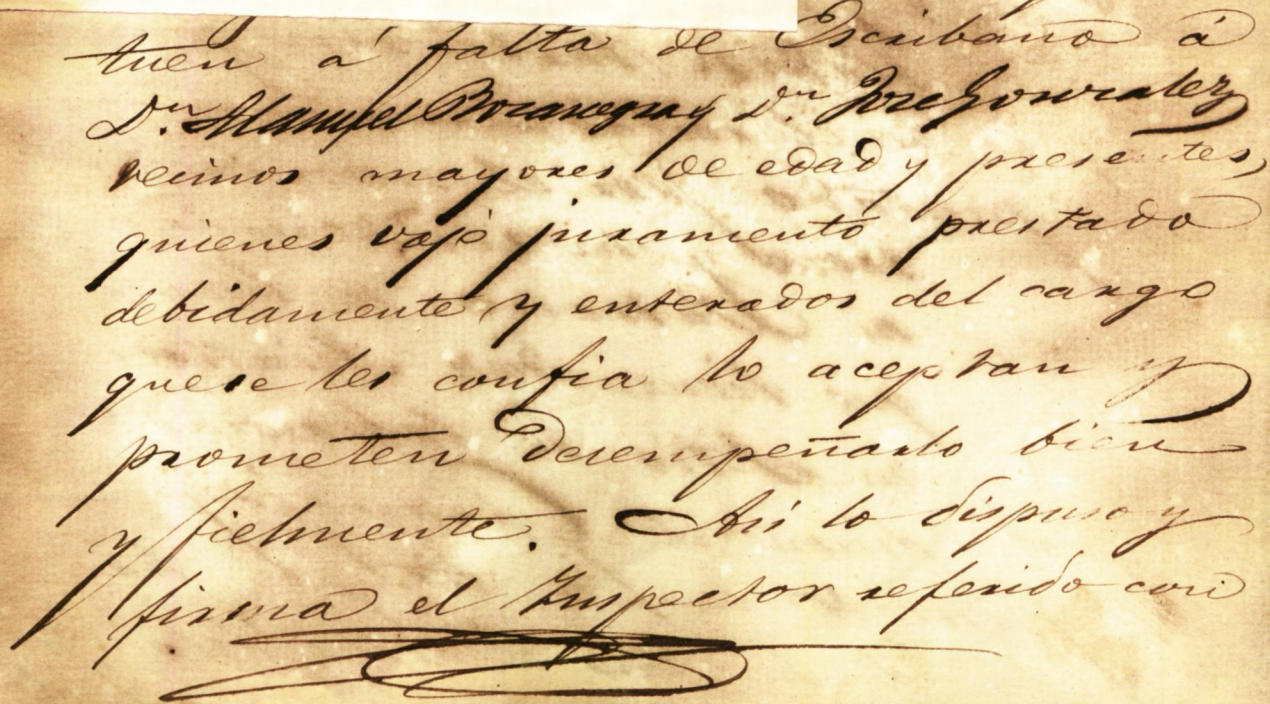 tuen á falta de Escribano á
Dn. Manuel Bocanegra y Dn. Jose Gonzalez
vecinos mayores de edad y presentes,
quienes vajo juramento prestado
debidamente y enterados del cargo
que se les confia lo aceptan y
prometen desempeñarlo bien
y fielmente. Asi lo dispuso y
firma el Inspector referido con